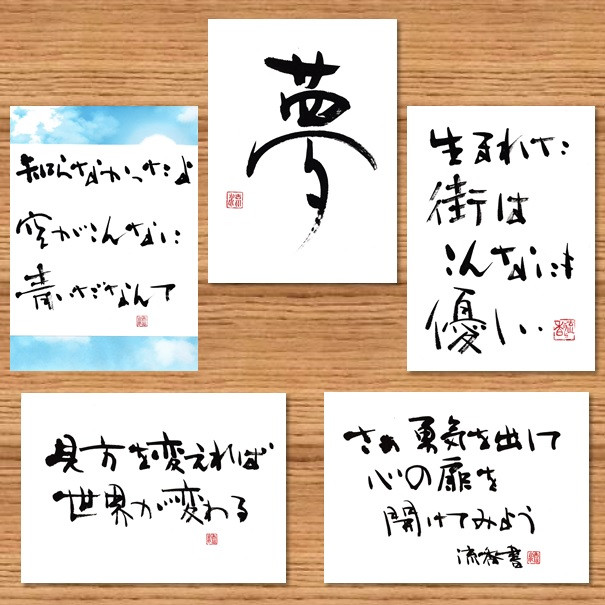 夢
知らなかったよ
空がこんなに
青いだなんて
生まれた
街は
こんなにも
優しい
見方を変えれば
世界が変わる
さあ勇気を出して
心の扉を
開けてみよう